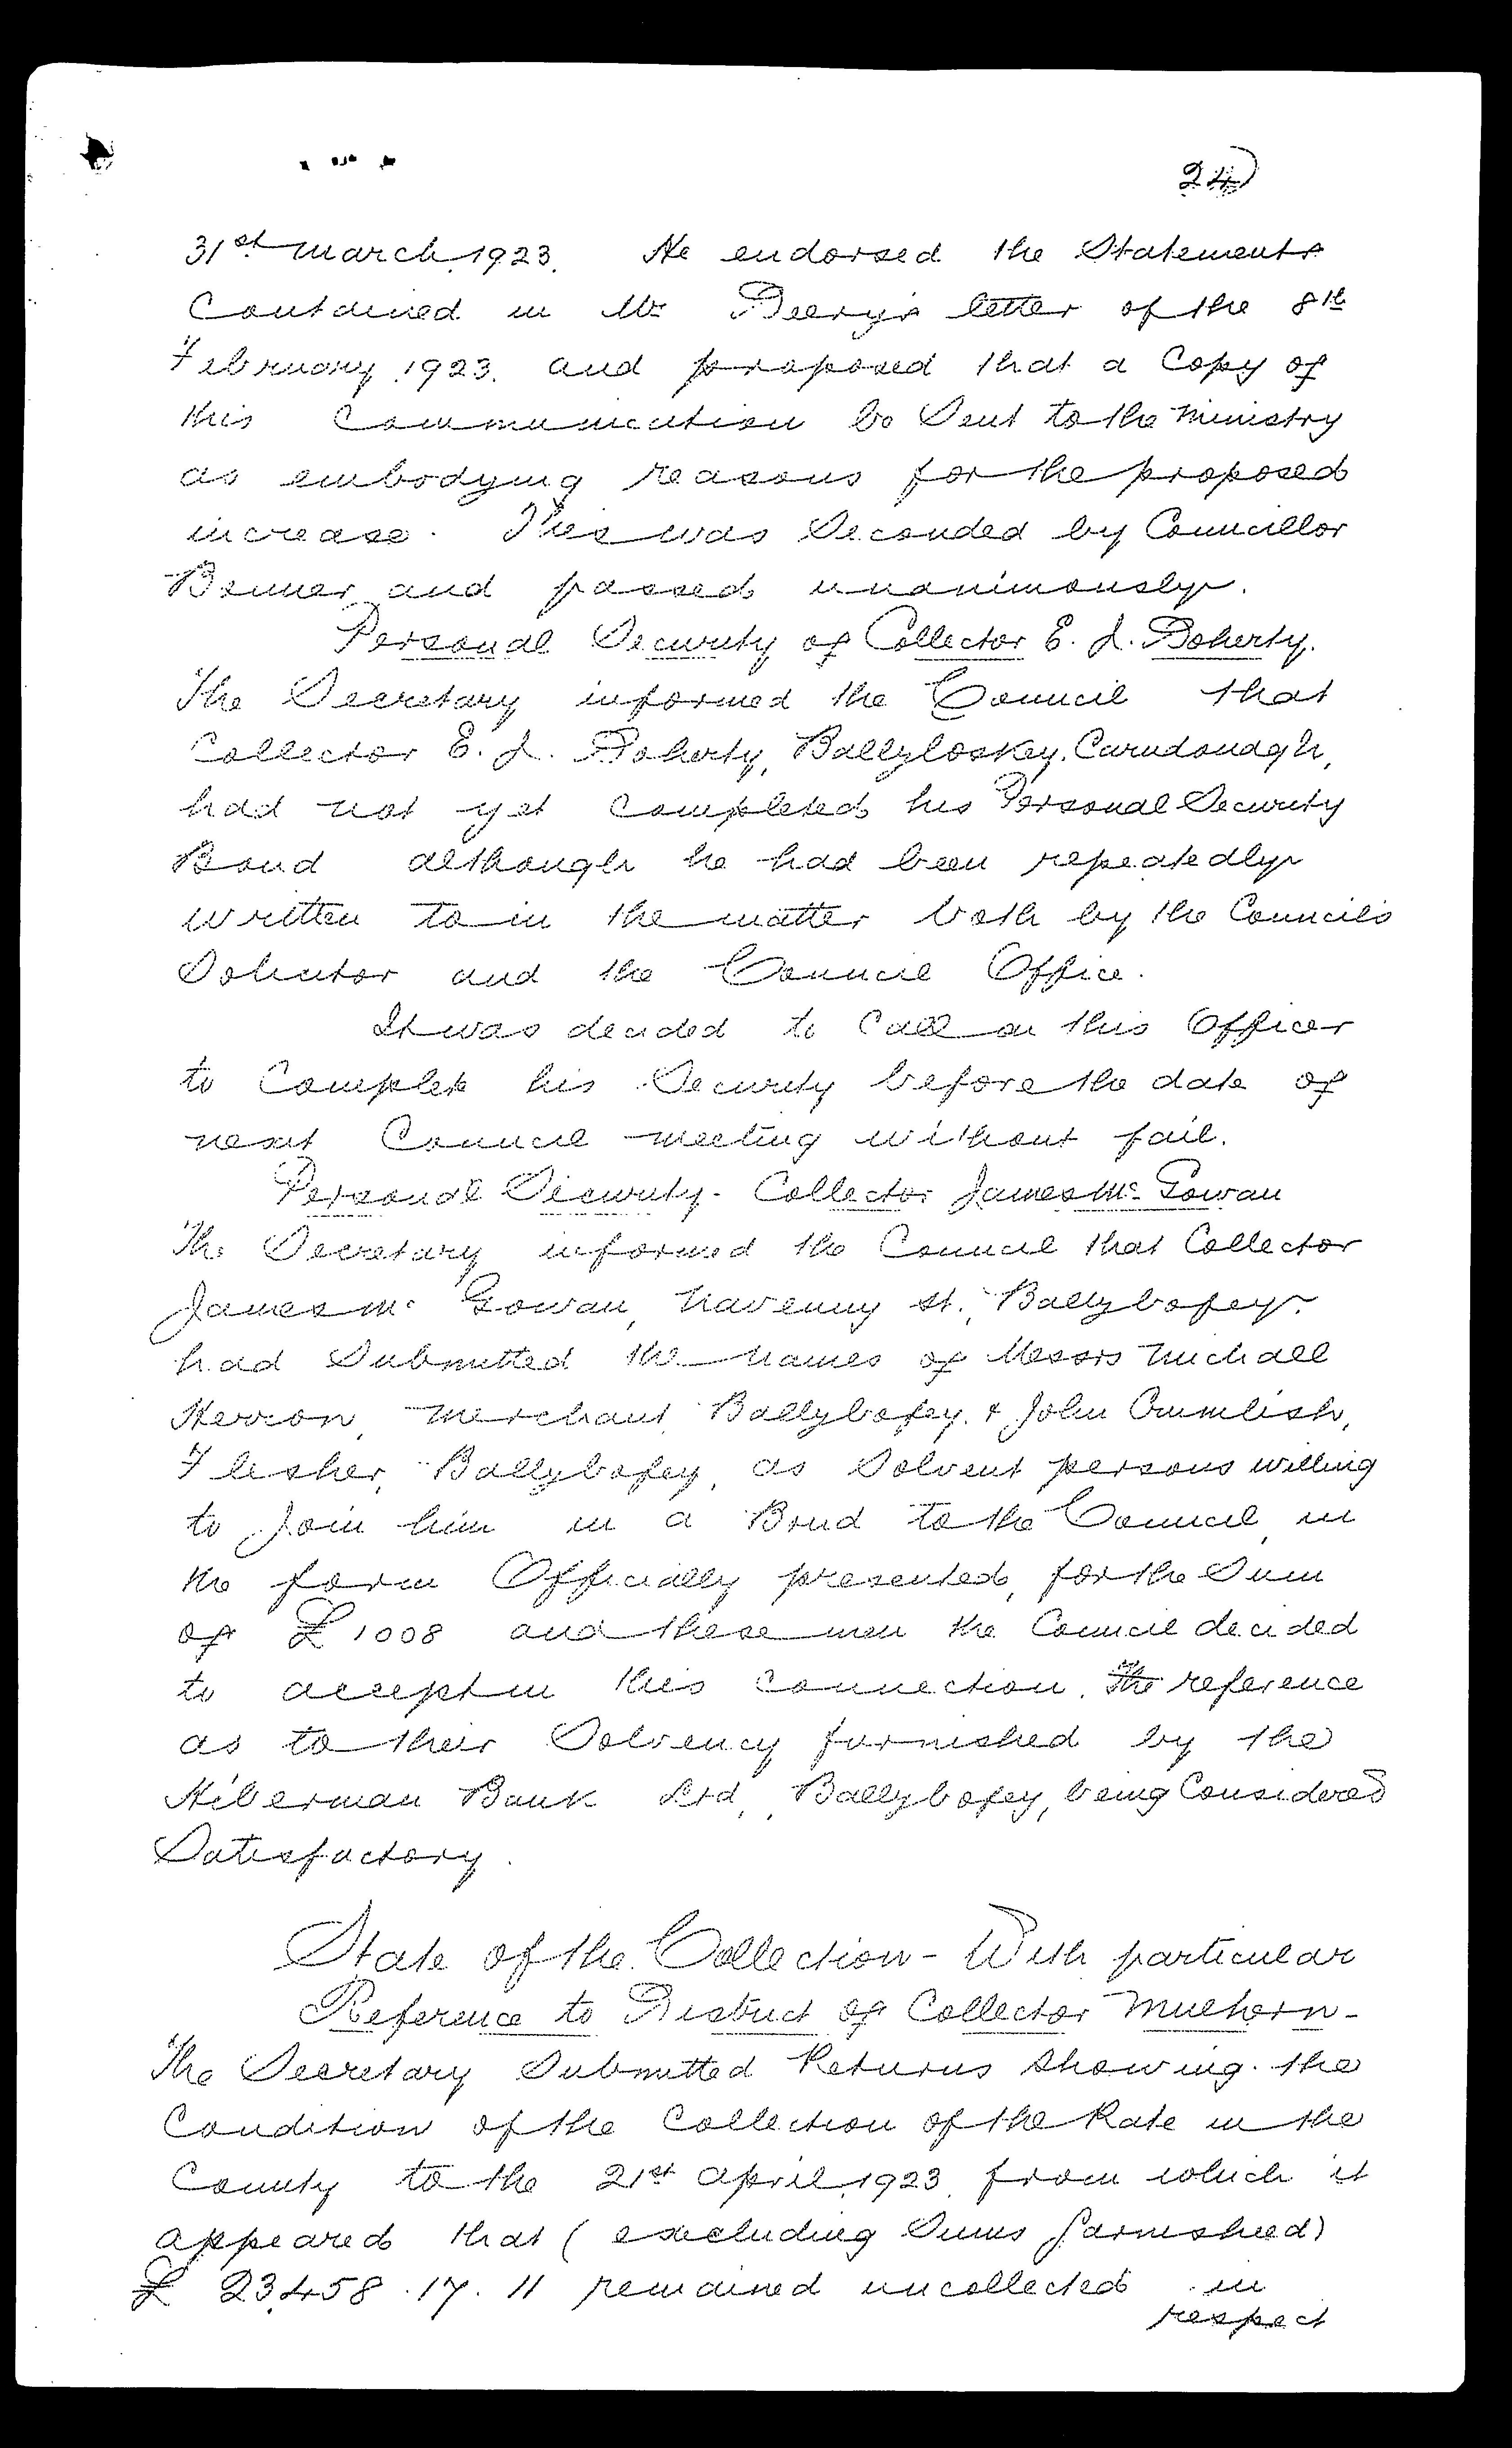 24)
31st March, 1923. He endorsed the Statements
Contained in Mr Deery's letter of the 8th
February, 1923. and proposed that a Copy of
this Communication be Sent to the Ministry
as embodying reasons for the proposed
increase. This was Seconded by Councillor
and passed unanimously.
Personal Security of Collector E. J. Doherty.
The Secretary informed the Council that
Collector E. J. Doherty, Ballyloskey, Carndonagh,
had not yet Completed his Personal Security
Bond although he had been repeatedly
written to in the matter both by the Council's
Solicitor and the Council Office.
It was decided to Call on this Officer
to Complete his Security before the date of
next Council meeting without fail.
Personal Security. Collector James Mc Gowan
The Secretary informed the Council that Collector
James Mc Gowan, Navenny St., Ballybofey.
had Submitted the names of Messrs Michael
Herron, Merchant Ballybofey, & John Crumlish,
Flesher, Ballybofey, as Solvent persons willing
to Join him in a Bond to the Council, in
the form Officially presented, for the Sum
of £1008 and these men the Council decided
to accept in this Connection. The reference
as to their Solvency furnished by the
Hibernian Bank Ltd, Ballybofey, being Considered
Satisfactory.
State of the Collection - With particular
Reference to District of Collector Mulhern -
The Secretary Submitted Returns Showing the
Condition of the Collection of the Rate in the
County to the 21st April, 1923, from which it
appeared that (excluding Sums garnisheed)
£ 23,458. 17. 11 remained uncollected in
respect